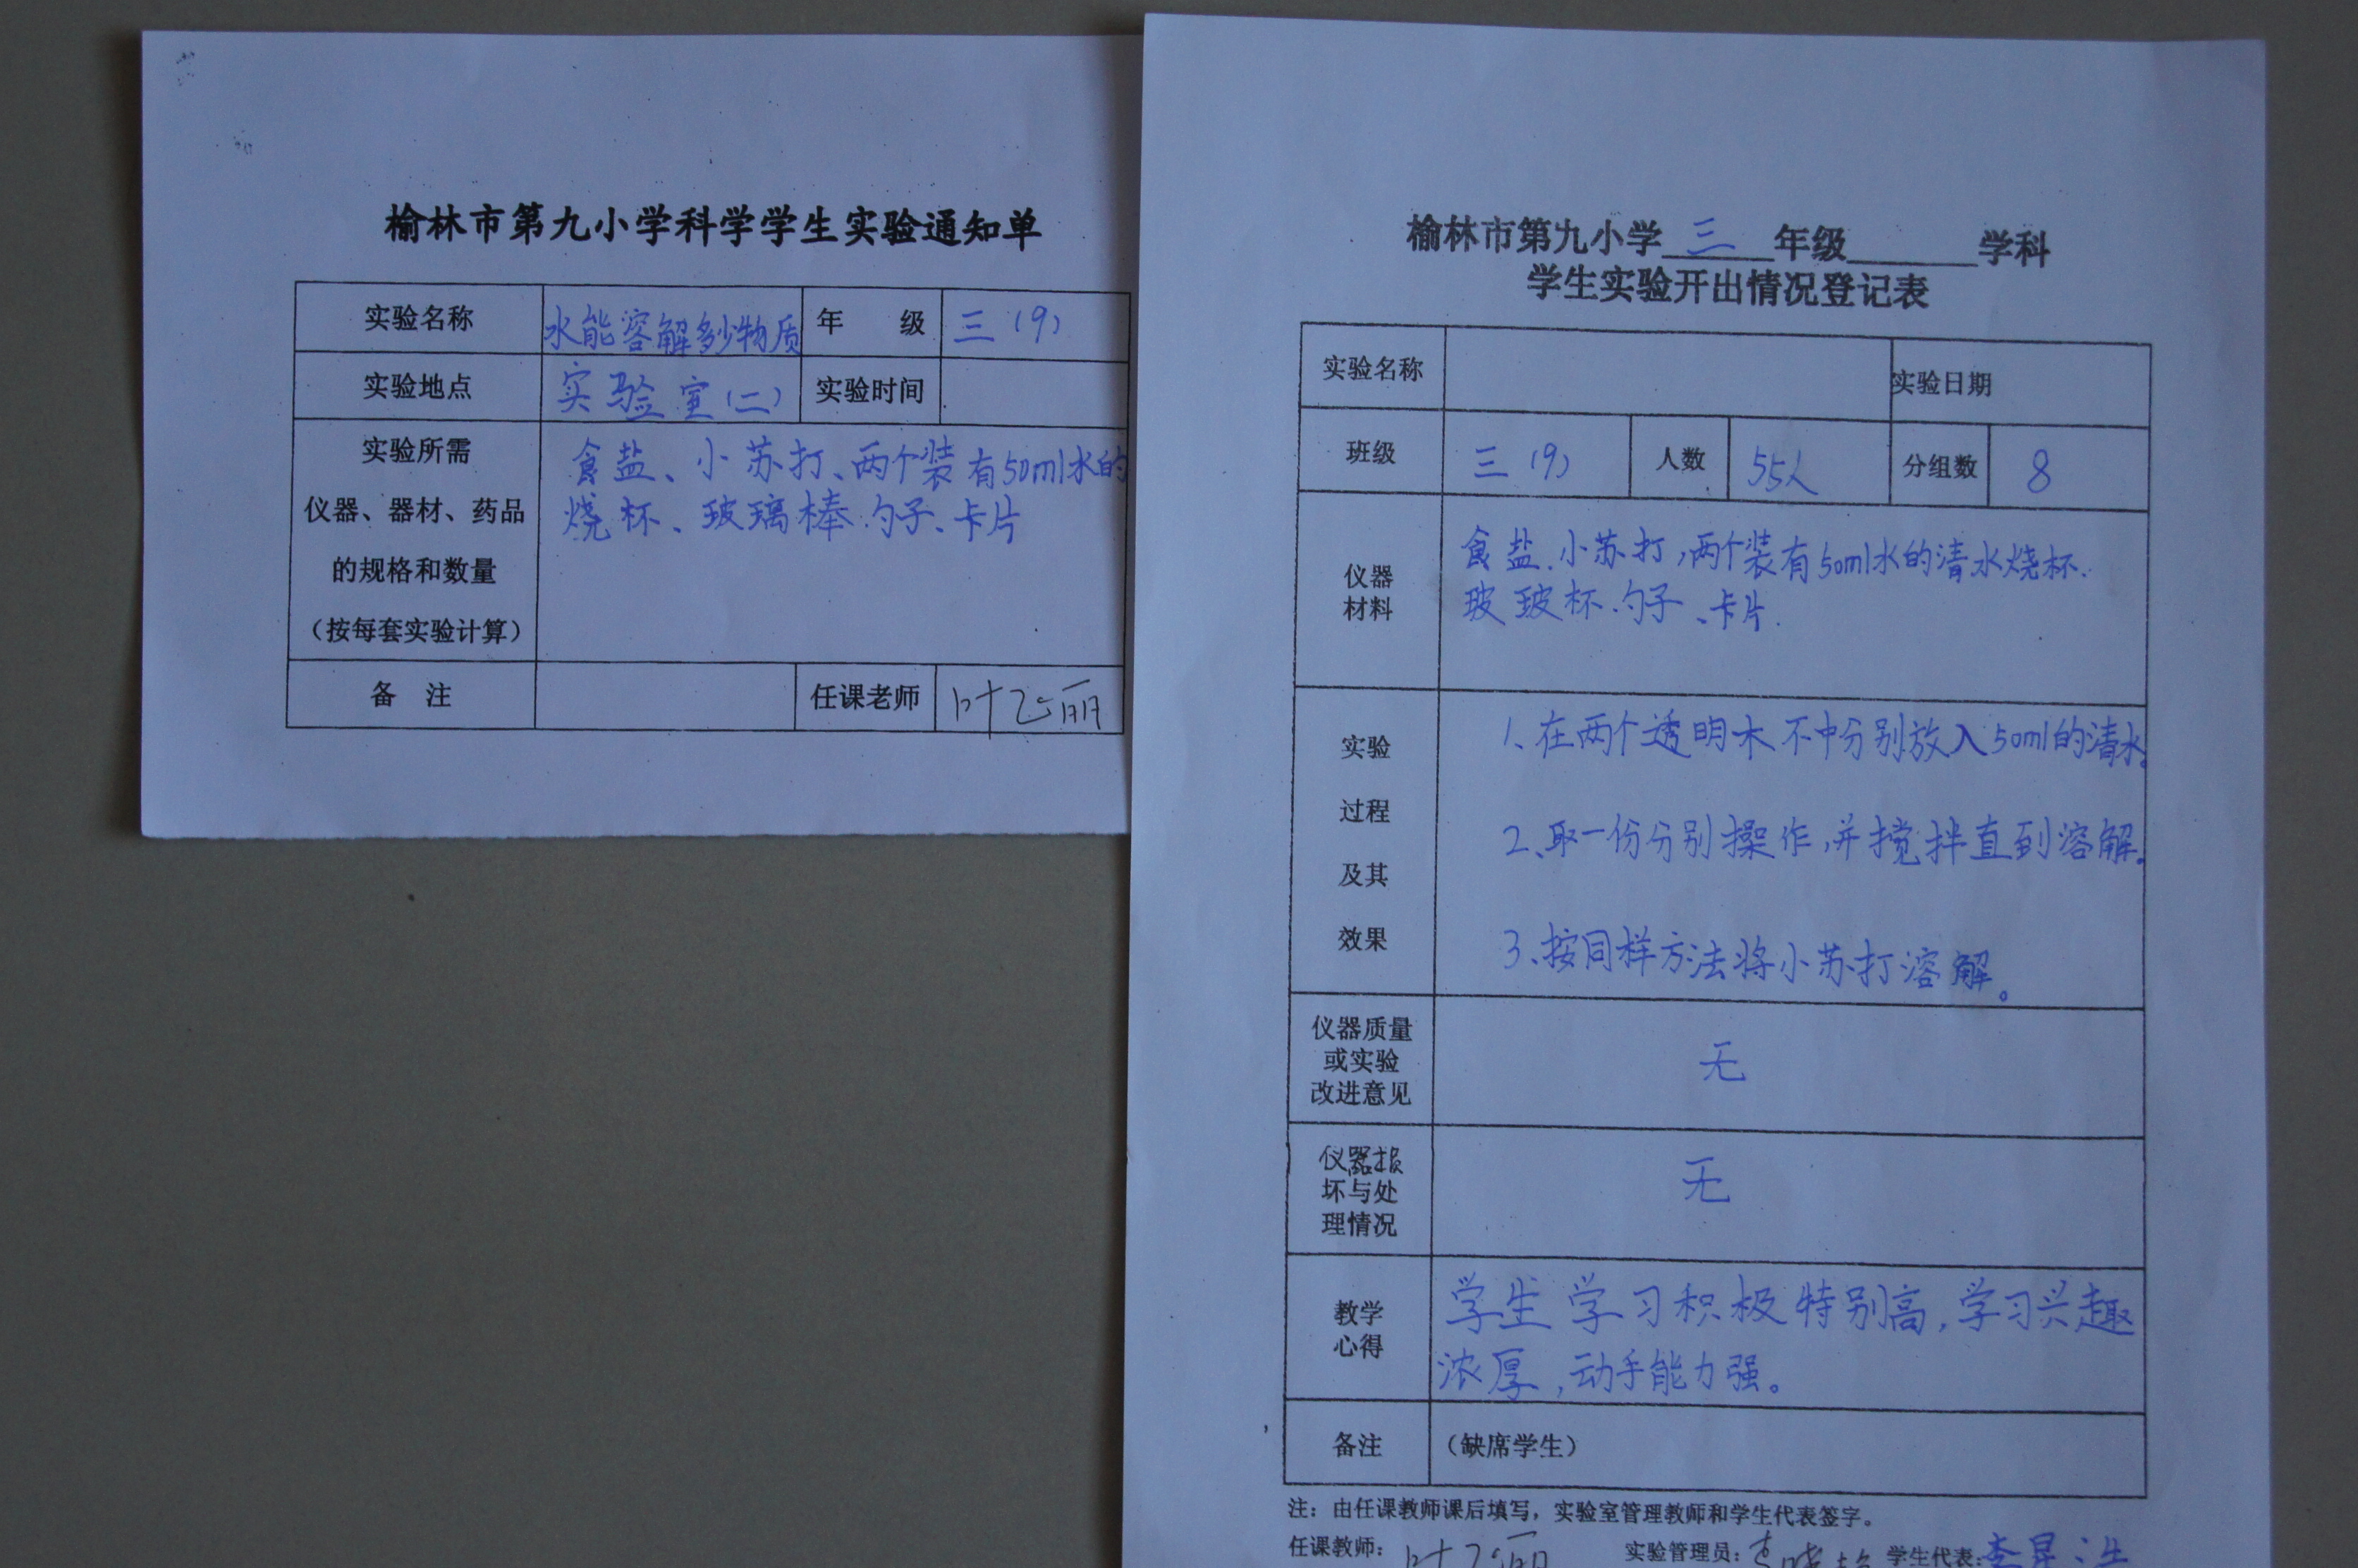 榆林市第九小学科学学生实验通知单
实验名称 水能溶解多少物质 年 级 三(9)
实验地点 实验室(二) 实验时间
实验所需
仪器、器材、药品
的规格和数量
(按每套实验计算)
食盐、小苏打、两个装有50ml水的
烧杯、玻璃棒.勺子、卡片
备 注 任课老师
榆林市第九小学 三 年级 学科
学生实验开出情况登记表
实验名称 实验日期
班级 三(9) 人数 55人 分组数 8
仪器
材料
食盐.小苏打,两个装有50ml水的清水烧杯.
玻玻杯.勺子、卡片.
实验
过程
及其
效果
1、在两个透明木不中分别放入50ml的清水。
2、取一份分别操作,并搅拌直到溶解。
3、按同样方法将小苏打溶解。
仪器质量
或实验
改进意见
无
仪器损
坏与处
理情况
无
教学
心得
学生学习积极特别高,学习兴趣
浓厚,动手能力强。
备注 (缺席学生)
注:由任课教师课后填写,实验室管理教师和学生代表签字。
任课教师: 实验管理员: 学生代表: